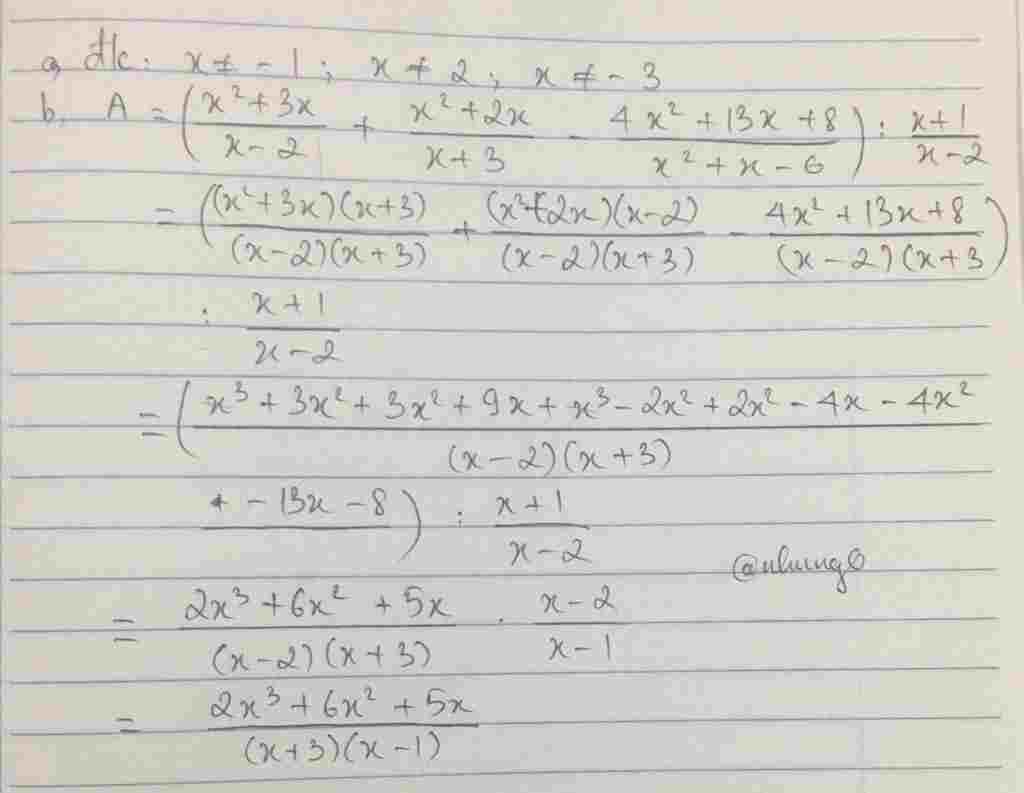 a, đk: x ≠ -1; x ≠ 2; x ≠ -3
b, A = ((x² + 3x)/(x - 2) + (x² + 2x)/(x + 3) - (4x² + 13x + 8)/(x² + x - 6)) : (x + 1)/(x - 2)
= ((x² + 3x)(x + 3)/(x - 2)(x + 3) + (x² + 2x)(x - 2)/(x - 2)(x + 3) - (4x² + 13x + 8)/(x - 2)(x + 3)
: (x + 1)/(x - 2)
= ((x³ + 3x² + 3x² + 9x + x³ - 2x² + 2x² - 4x - 4x²)/(x - 2)(x + 3)
- 13x - 8) : (x + 1)/(x - 2)
@nhung6
= (2x³ + 6x² + 5x)/(x - 2)(x + 3) . (x - 2)/(x - 1)
= (2x³ + 6x² + 5x)/(x + 3)(x - 1)